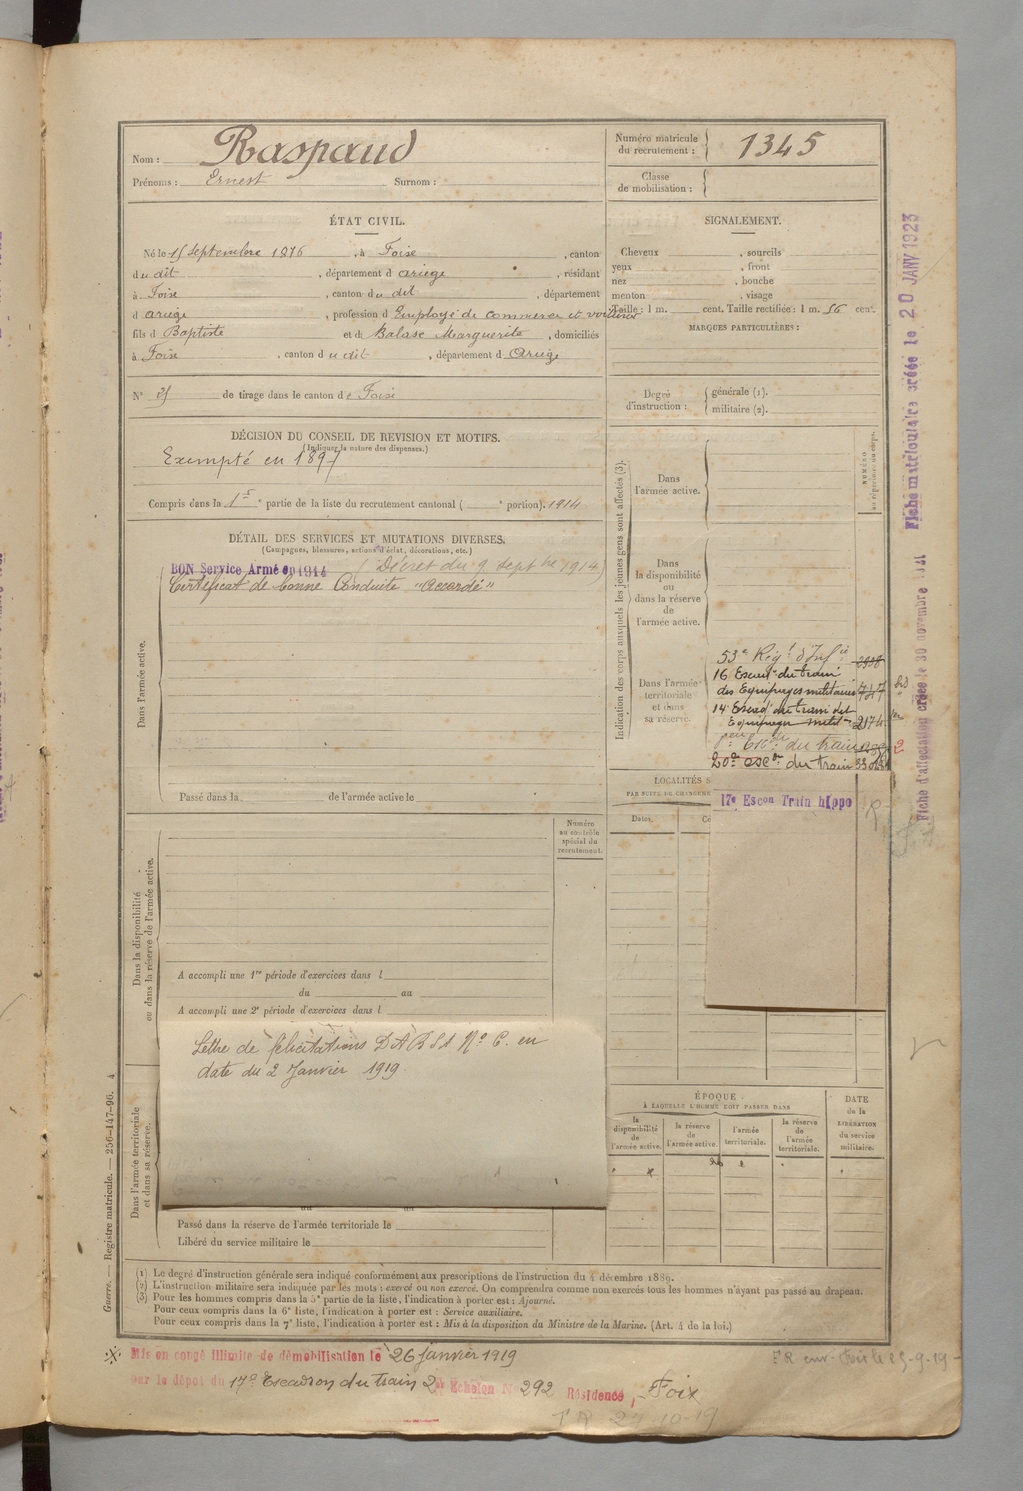 Nom : Raspaud
Prénoms : Ernest Surnom :
Numéro matricule du recrutement : 1345
Classe de mobilisation :
ÉTAT CIVIL.
Né le 15 septembre 1876, à Foix, canton
du dit, département d ariège, résidant
à Foix, canton du dit, département
d ariège, profession d Employé de commerce et voiturier
fils d Baptiste et de Balase Marguerite, domiciliés
à Foix, canton du dit, département d Ariège
N° de tirage dans le canton de Foix
SIGNALEMENT.
Cheveux , sourcils
yeux , front
nez , bouche
menton , visage
Taille : 1 m. cent. Taille rectifiée : 1 m. 56 cent.
MARQUES PARTICULIÈRES :
Degré d'instruction : générale (1).
militaire (2).
DÉCISION DU CONSEIL DE REVISION ET MOTIFS.
(Indiquer la nature des dispenses.)
Exempté en 1897
Compris dans la 1re partie de la liste du recrutement cantonal ( e portion). 1914
DÉTAIL DES SERVICES ET MUTATIONS DIVERSES.
(Campagnes, blessures, actions d'éclat, décorations, etc.)
BON Service Armé en 1914 (Décret du 9 septbre 1914)
Certificat de bonne Conduite "Accordé"
Dans l'armée active.
Passé dans la de l'armée active le
Indication des corps auxquels les jeunes gens sont affectés (3).
NUMÉRO
au répertoire du corps.
Dans l'armée active.
Dans la disponibilité ou dans la réserve de l'armée active.
Dans l'armée territoriale et dans sa réserve.
53e Régt d'Infie
16 Escadon du train
des Equipages militaires 747
14 Escad du train des
Equipages milit 2174
du train
20e esc on du train
17e Escon Train hippo
LOCALITÉS S
PAR SUITE DE CHANGEME
Dates.
Numéro au contrôle spécial du recrutement.
Dans la disponibilité
ou dans la réserve de l'armée active.
A accompli une 1re période d'exercices dans l
du au
A accompli une 2e période d'exercices dans l
Lettre de félicitations D A R S A No C. en
date du 2 Janvier 1919
Dans l'armée territoriale
et dans sa réserve.
Passé dans la réserve de l'armée territoriale le
Libéré du service militaire le
ÉPOQUE
À LAQUELLE L'HOMME DOIT PASSER DANS
la disponibilité de l'armée active.
la réserve de l'armée active.
l'armée territoriale.
la réserve de l'armée territoriale.
DATE de la LIBÉRATION du service militaire.
(1) Le degré d'instruction générale sera indiqué conformément aux prescriptions de l'instruction du 4 décembre 1889.
(2) L'instruction militaire sera indiquée par les mots : exercé ou non exercé. On comprendra comme non exercés tous les hommes n'ayant pas passé au drapeau.
(3) Pour les hommes compris dans la 5e partie de la liste, l'indication à porter est : Ajourné.
Pour ceux compris dans la 6e liste, l'indication à porter est : Service auxiliaire.
Pour ceux compris dans la 7e liste, l'indication à porter est : Mis à la disposition du Ministre de la Marine. (Art. 4 de la loi.)
Guerre. — Registre matricule. — 256-147-96. 4
Mis en congé illimité de démobilisation le 26 janvier 1919
par le dépôt du 17e Escadron du train 2er Echelon N° 292 Résidence, Foix
Fiche matriculaire créée le 20 JANV 1923
Fiche d'affectation créée le 30 novembre